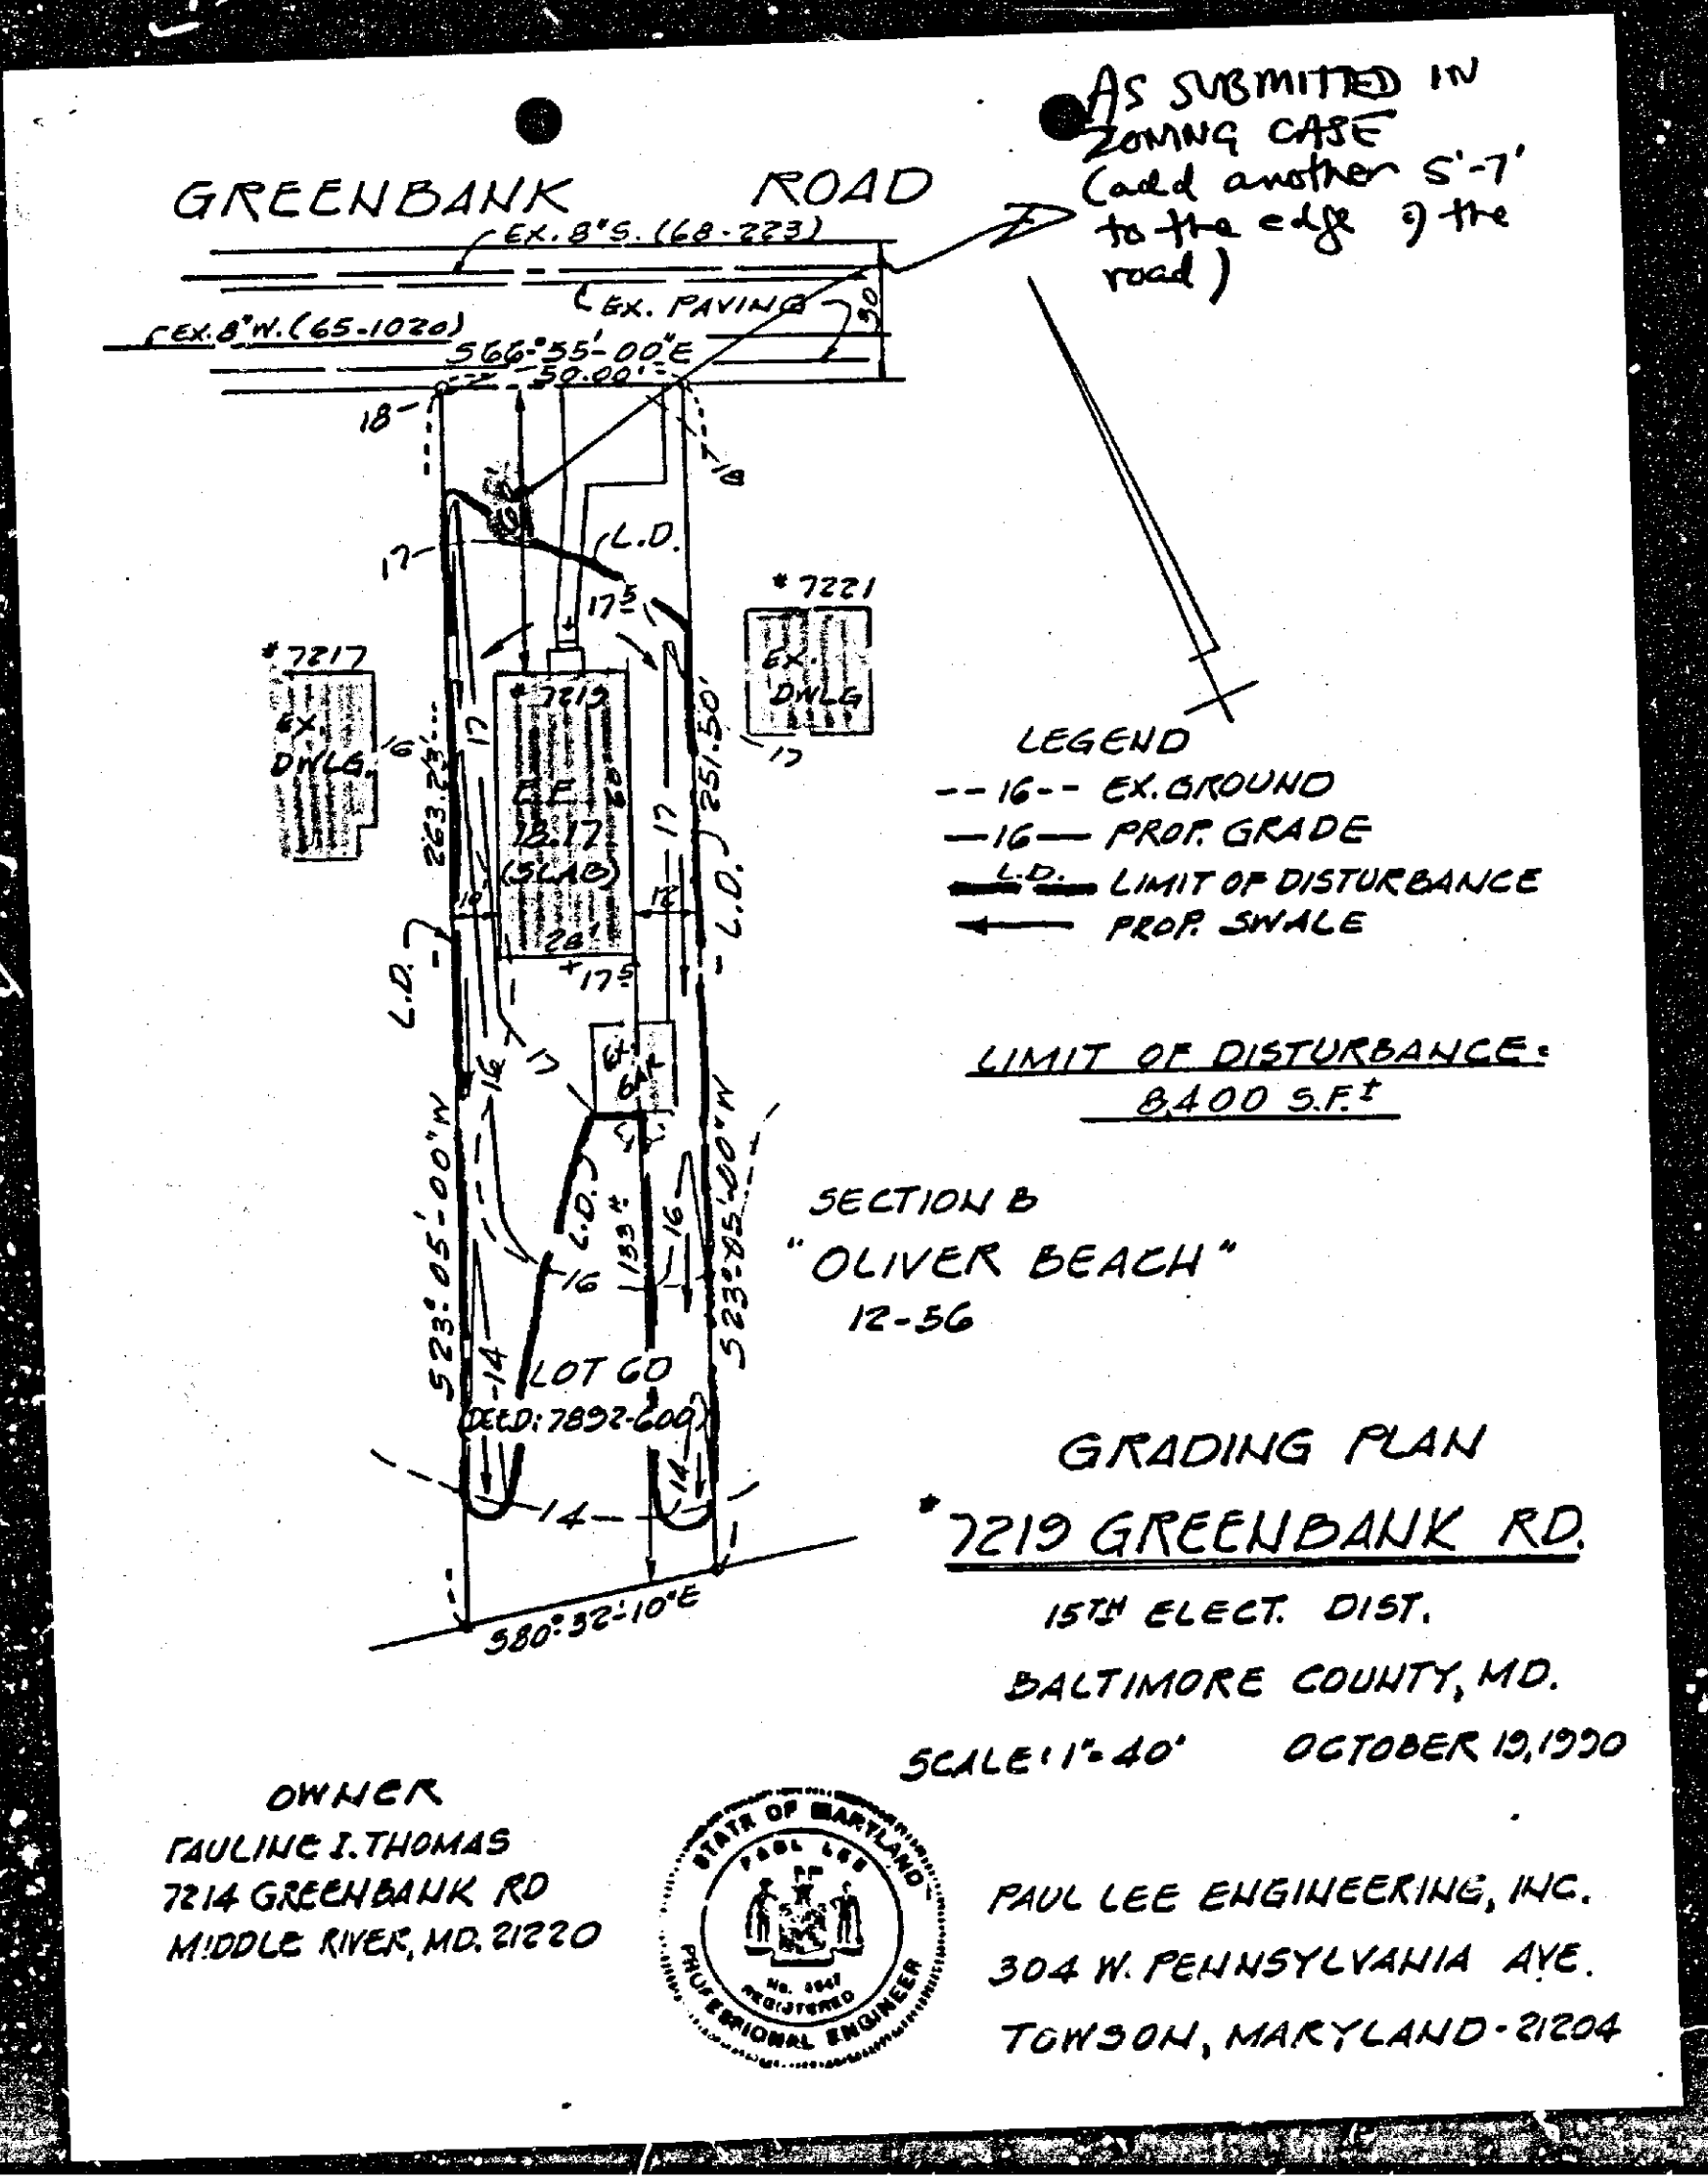 AS SUBMITTED IN
ZONING CASE
(add another 5'-7'
to the edge of the
road)
GREENBANK ROAD
EX. 8"S. (68-223)
EX. PAVING
30
EX. 8"W. (65-1020)
S66°-55'-00"E
50.00'
18
18
17
L.D.
17⁵
# 7221
EX.
DWLG
# 7217
EX.
DWLG.
16
17
263.23'
17
# 7219
F.F.
18.17
(SLAB)
58'
28'
17
251.50'
10'
12'
L.D.
L.D.
+17⁵
16
17
EX.
GAR
S23°-05'-00"W
S23°-05'-00"W
L.D.
133'±
16
16
14
LOT 60
(DEED: 7892-600)
14
14
S80°-32'-10"E
LEGEND
--16-- EX. GROUND
—16— PROP. GRADE
L.D. LIMIT OF DISTURBANCE
PROP. SWALE
LIMIT OF DISTURBANCE:
8,400 S.F.±
SECTION B
"OLIVER BEACH"
12-56
GRADING PLAN
# 7219 GREENBANK RD.
15TH ELECT. DIST.
BALTIMORE COUNTY, MD.
SCALE: 1"=40' OCTOBER 19, 1990
OWNER
PAULINE I. THOMAS
7214 GREENBANK RD
MIDDLE RIVER, MD. 21220
STATE OF MARYLAND
PAUL LEE
No. 4947
REGISTERED
PROFESSIONAL ENGINEER
PAUL LEE ENGINEERING, INC.
304 W. PENNSYLVANIA AVE.
TOWSON, MARYLAND-21204